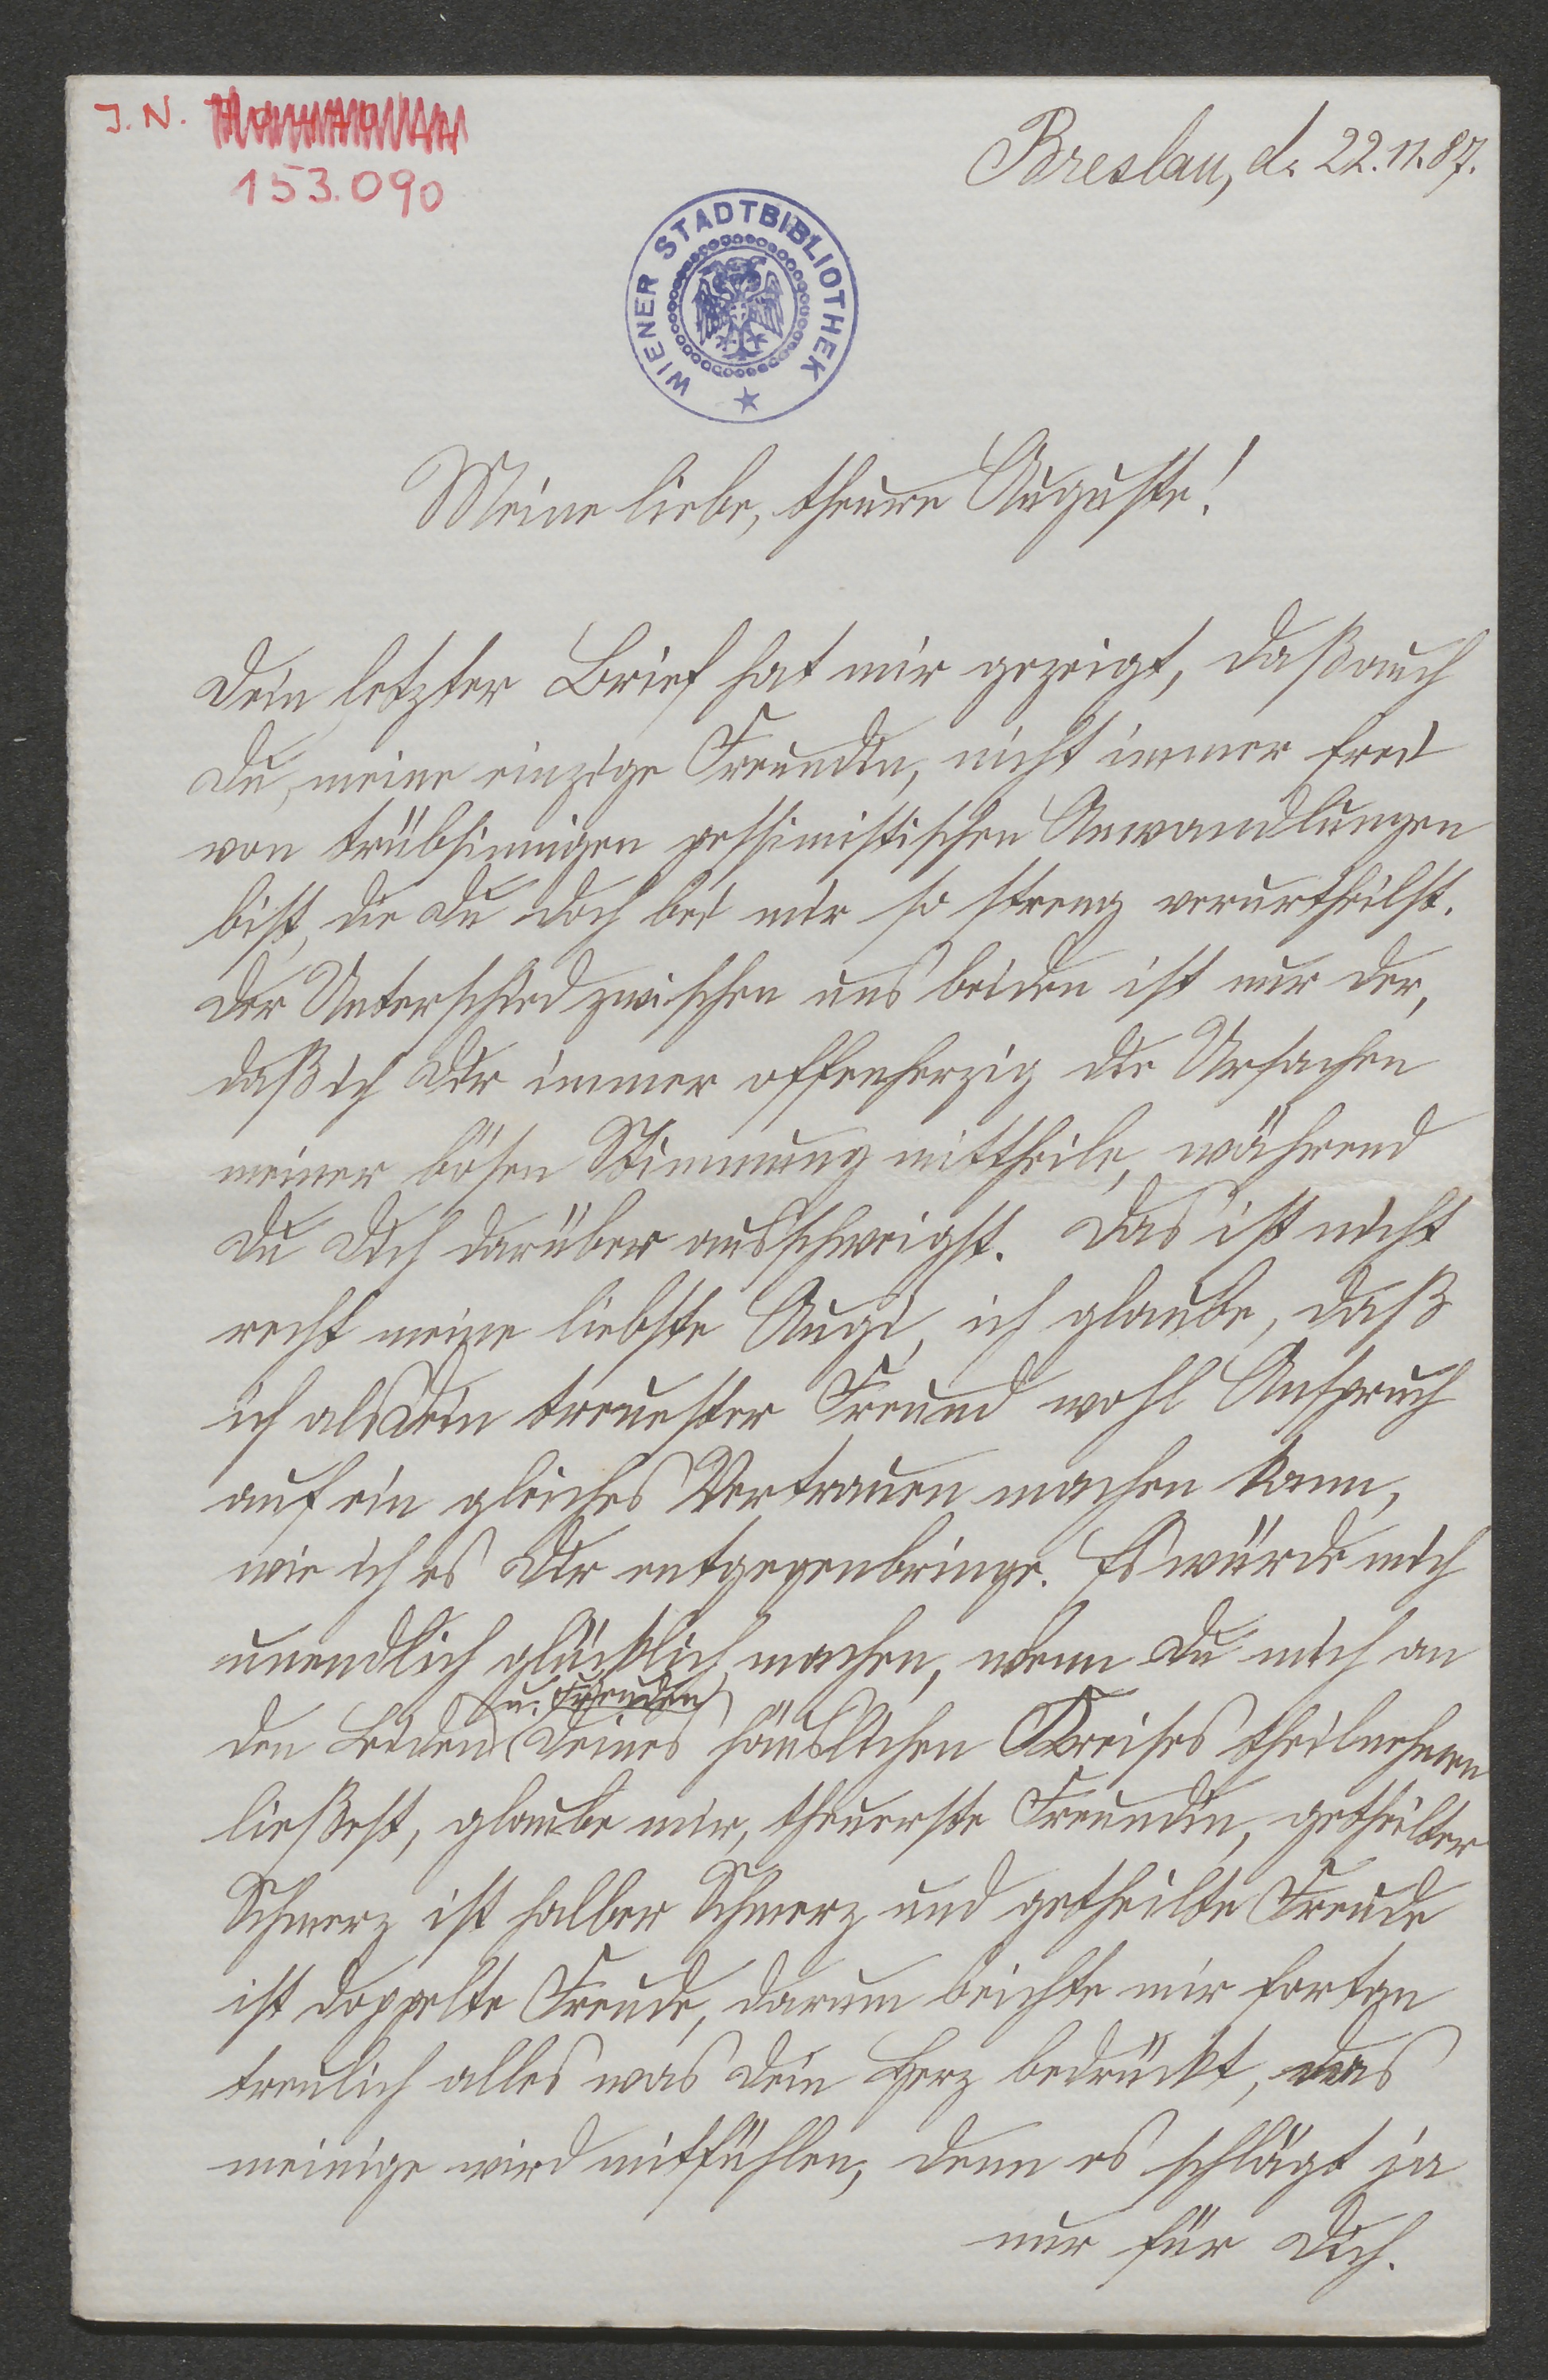 J. N.
153.090
Breslau, d. 22.11.87.
WIENER STADTBIBLIOTHEK
Meine liebe, theure Auguste!
Dein letzter Brief hat mir gezeigt, daß auch
Du, meine einzige Freundin, nicht immer frei
von trübsinnigen pessimistischen Anwandlungen
bist, die Du doch bei mir so streng verurtheilst.
Der Unterschied zwischen uns beiden ist nur der,
daß ich Dir immer offenherzig die Ursachen
meiner bösen Stimmung mittheile, während
Du Dich darüber ausschweigst. Das ist nicht
recht meine liebste Augi, ich glaube, daß
ich als Dein treuester Freund wohl Anspruch
auf ein gleiches Vertrauen machen kann,
wie ich es Dir entgegenbringe. Es würde mich
unendlich glücklich machen, wenn Du mich an
u. Freuden
den Leiden Deines häuslichen Kreises theilnehmen
ließest, glaube mir, theuerste Freundin, getheilter
Schmerz ist halber Schmerz und getheilte Freude
ist doppelte Freude, darum beichte mir fortan
treulich alles was Dein Herz bedrückt, das
meinige wird mitfühlen, denn es schlägt ja
nur für Dich.